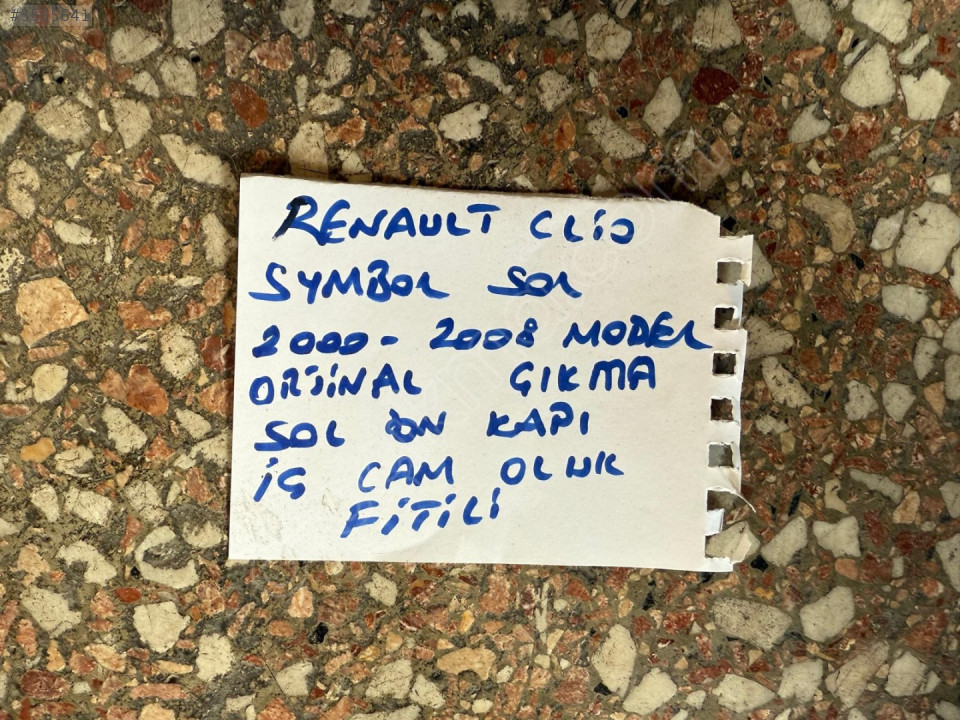 RENAULT CLİO
SYMBOL SOL
2000 - 2008 MODEL
ORJİNAL ÇIKMA
SOL ÖN KAPI
İÇ CAM OLUK
FİTİLİ